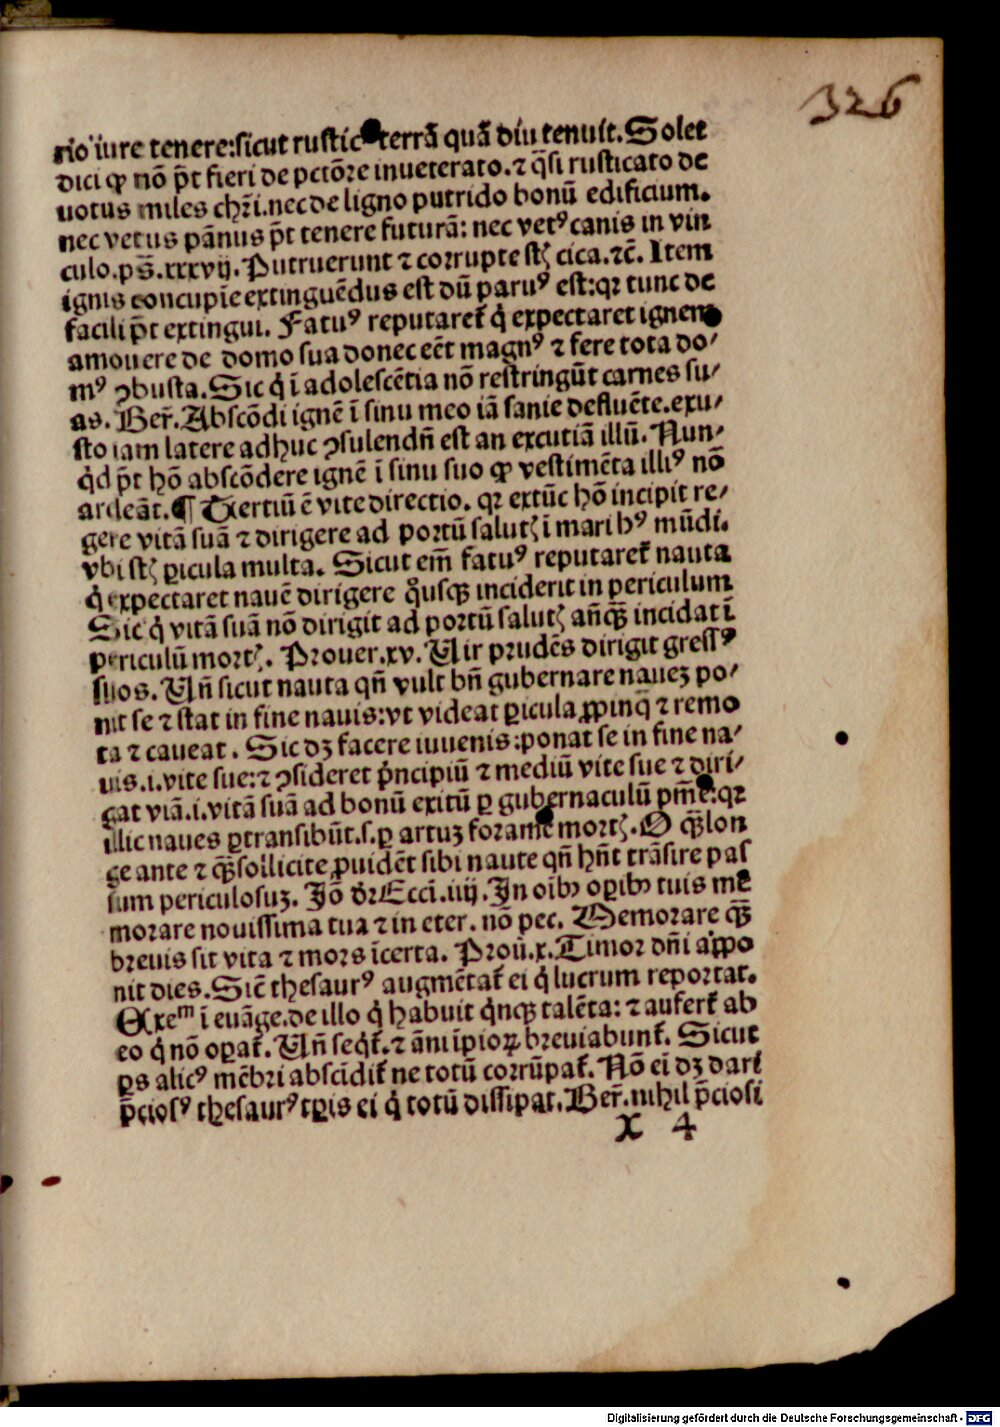 326
rio iure tenere:sicut rustic terrā quā diu tenuit. Solet
dici ꝙ nō p̄t fieri de pctōre inueterato.⁊ q̄si rusticato de
uotus miles chr̄i.nec de ligno putrido bonū edificium.
nec vetus pānus p̄t tenere futurā: nec vetꝰ canis in vin
culo.ps̄.xxxvij.Putruerunt ⁊ corrupte stꝫ cica.⁊c̄. Item
ignis concupīe extinguēdus est dū paruꝰ est:qꝛ tunc de
facili p̄t extingui. Fatuꝰ reputaret̄ q̇ expectaret ignem
amouere de domo sua donec eēt magnꝰ ⁊ fere tota do/
mꝰ ꝯbusta.Sic q̇ ī adolescētia nō restringūt carnes su/
as. Ber̄.Abscōdi ignē ī sinu meo iā sanie defluēte.exu/
sto iam latere adhuc ꝯsulendn̄ est an excutiā illū. Nun/
q̇d p̄t hō abscōdere ignē ī sinu suo ꝙ vestimēta illiꝰ nō
ardeāt.¶ Tertiū ē vite directio. qꝛ extūc hō incipit re/
gere vitā suā ⁊ dirigere ad portū salutꝫ ī mari hꝰ mūdi.
vbi stꝫ ꝑicula multa. Sicut em̄ fatuꝰ reputaret̄ nauta
q̇ expectaret nauē dirigere q̊usqꝫ inciderit in periculum
Sic q̇ vitā suā nō dirigit ad portū salutꝫ an̄qꝫ incidat ī
periculū mortꝫ. Prouer.xv.Uir prudēs dirigit gressꝰ
suos.Un̄ sicut nauta qn̄ vult bn̄ gubernare naueꝫ po/
nit se ⁊ stat in fine nauis:vt videat ꝑicula ꝓpinq̄ ⁊ remo
ta ⁊ caueat. Sic dꝫ facere iuuenis:ponat se in fine na/
uis.i.vite sue:⁊ ꝯsideret p̄ncipiū ⁊ mediū vite sue ⁊ diri/
gat viā.i.vitā suā ad bonū exitū ꝑ gubernaculū pm̄e:qꝛ
illic naues ꝑtransibūt.s.ꝑ artuꝫ foramē mortꝫ.O qꝫ lon
ge ante ⁊ qꝫ sollicite ꝓuidēt sibi naute qn̄ hn̄t trāsire pas
sum periculosuꝫ. Jō dr̄ Ecci.iiij.Jn oībꝫ oꝑibꝫ tuis me
morare nouissima tua ⁊ in eter. nō pec. Memorare qꝫ
breuis sit vita ⁊ mors īcerta. Proū.x.Timor dn̄i appo
nit dies.Sic̄ thesaurꝰ augmētat̄ ei q̇ lucrum reportat.
Exeᵐ ī euāge.de illo q̇ habuit q̇nqꝫ talēta: ⁊ aufert̄ ab
eo q̇ nō oꝑat̄. Un̄ seqt̄.⁊ āni īpioꝝ breuiabunt̄. Sicut
ꝑs alicꝰ mēbri abscidit̄ ne totū corrūpat̄. Nō ei dꝫ dari
p̄ciosꝰ thesaurꝰ tꝑis ei q̇ totū dissipat.Ber̄.nihil p̄ciosi
X 4
Digitalisierung gefördert durch die Deutsche Forschungsgemeinschaft - DFG